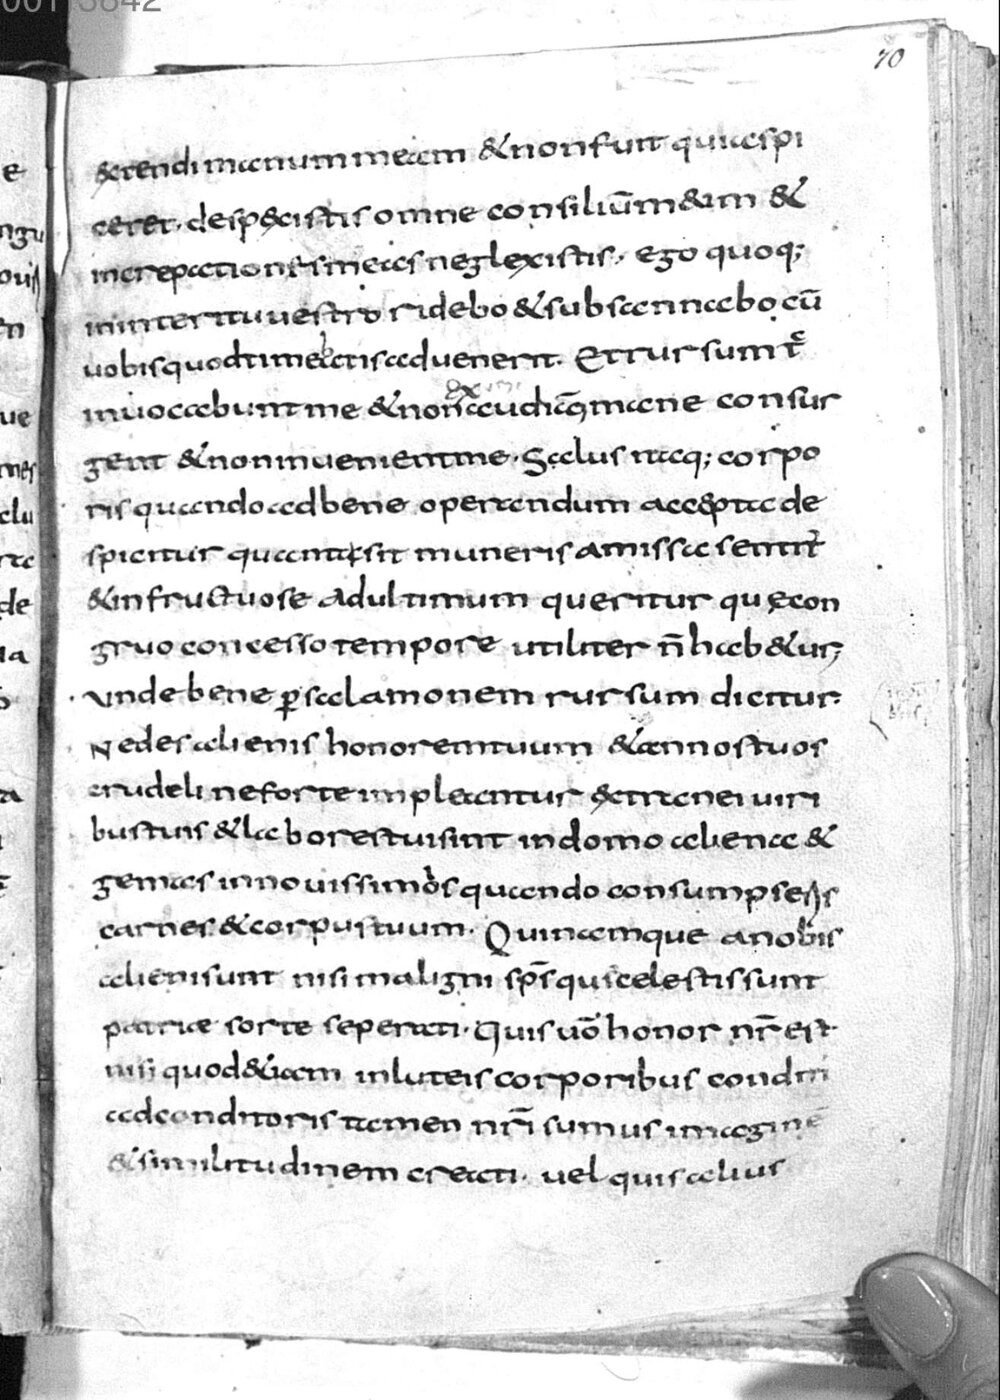 70
extendi manum meam & non fuit qui aspi
ceret. despexistis omne consiliū m&um &
increpationes meas neglexistis. ego quoq;
in interitu uestro ridebo & subsannabo cū
uobis quod timebatis aduenerit. Et rursum t̄
inuocabunt me & non exaudiā mane consur
gent & non inuenient me. Salus itaq; corpo
ris quando ad bene operandum accepta de
spicitur quanti sit muneris amissa sentit̄
& infructuose ad ultimum queritur quę con
gruo concesso tempore utiliter n̄ hab&ur;
unde bene ꝑ salamonem rursum dicitur.
Ne des alienis honorem tuum & annos tuos
crudeli ne forte impleantur extranei uiri
bus tuis & labores tui sint in domo aliena &
gemas in nouissimos quando consumpseris
carnes & corpus tuum. Qui namque a nobis
alieni sunt nisi maligni sp̄s qui celestis sunt
patriae sorte seperati. Quis uō honor nr̄ est
nisi quod &iam in luteis corporibus conditi
ad conditoris tamen nr̄i sumus imaginē
& similitudinem creati. uel quis alius